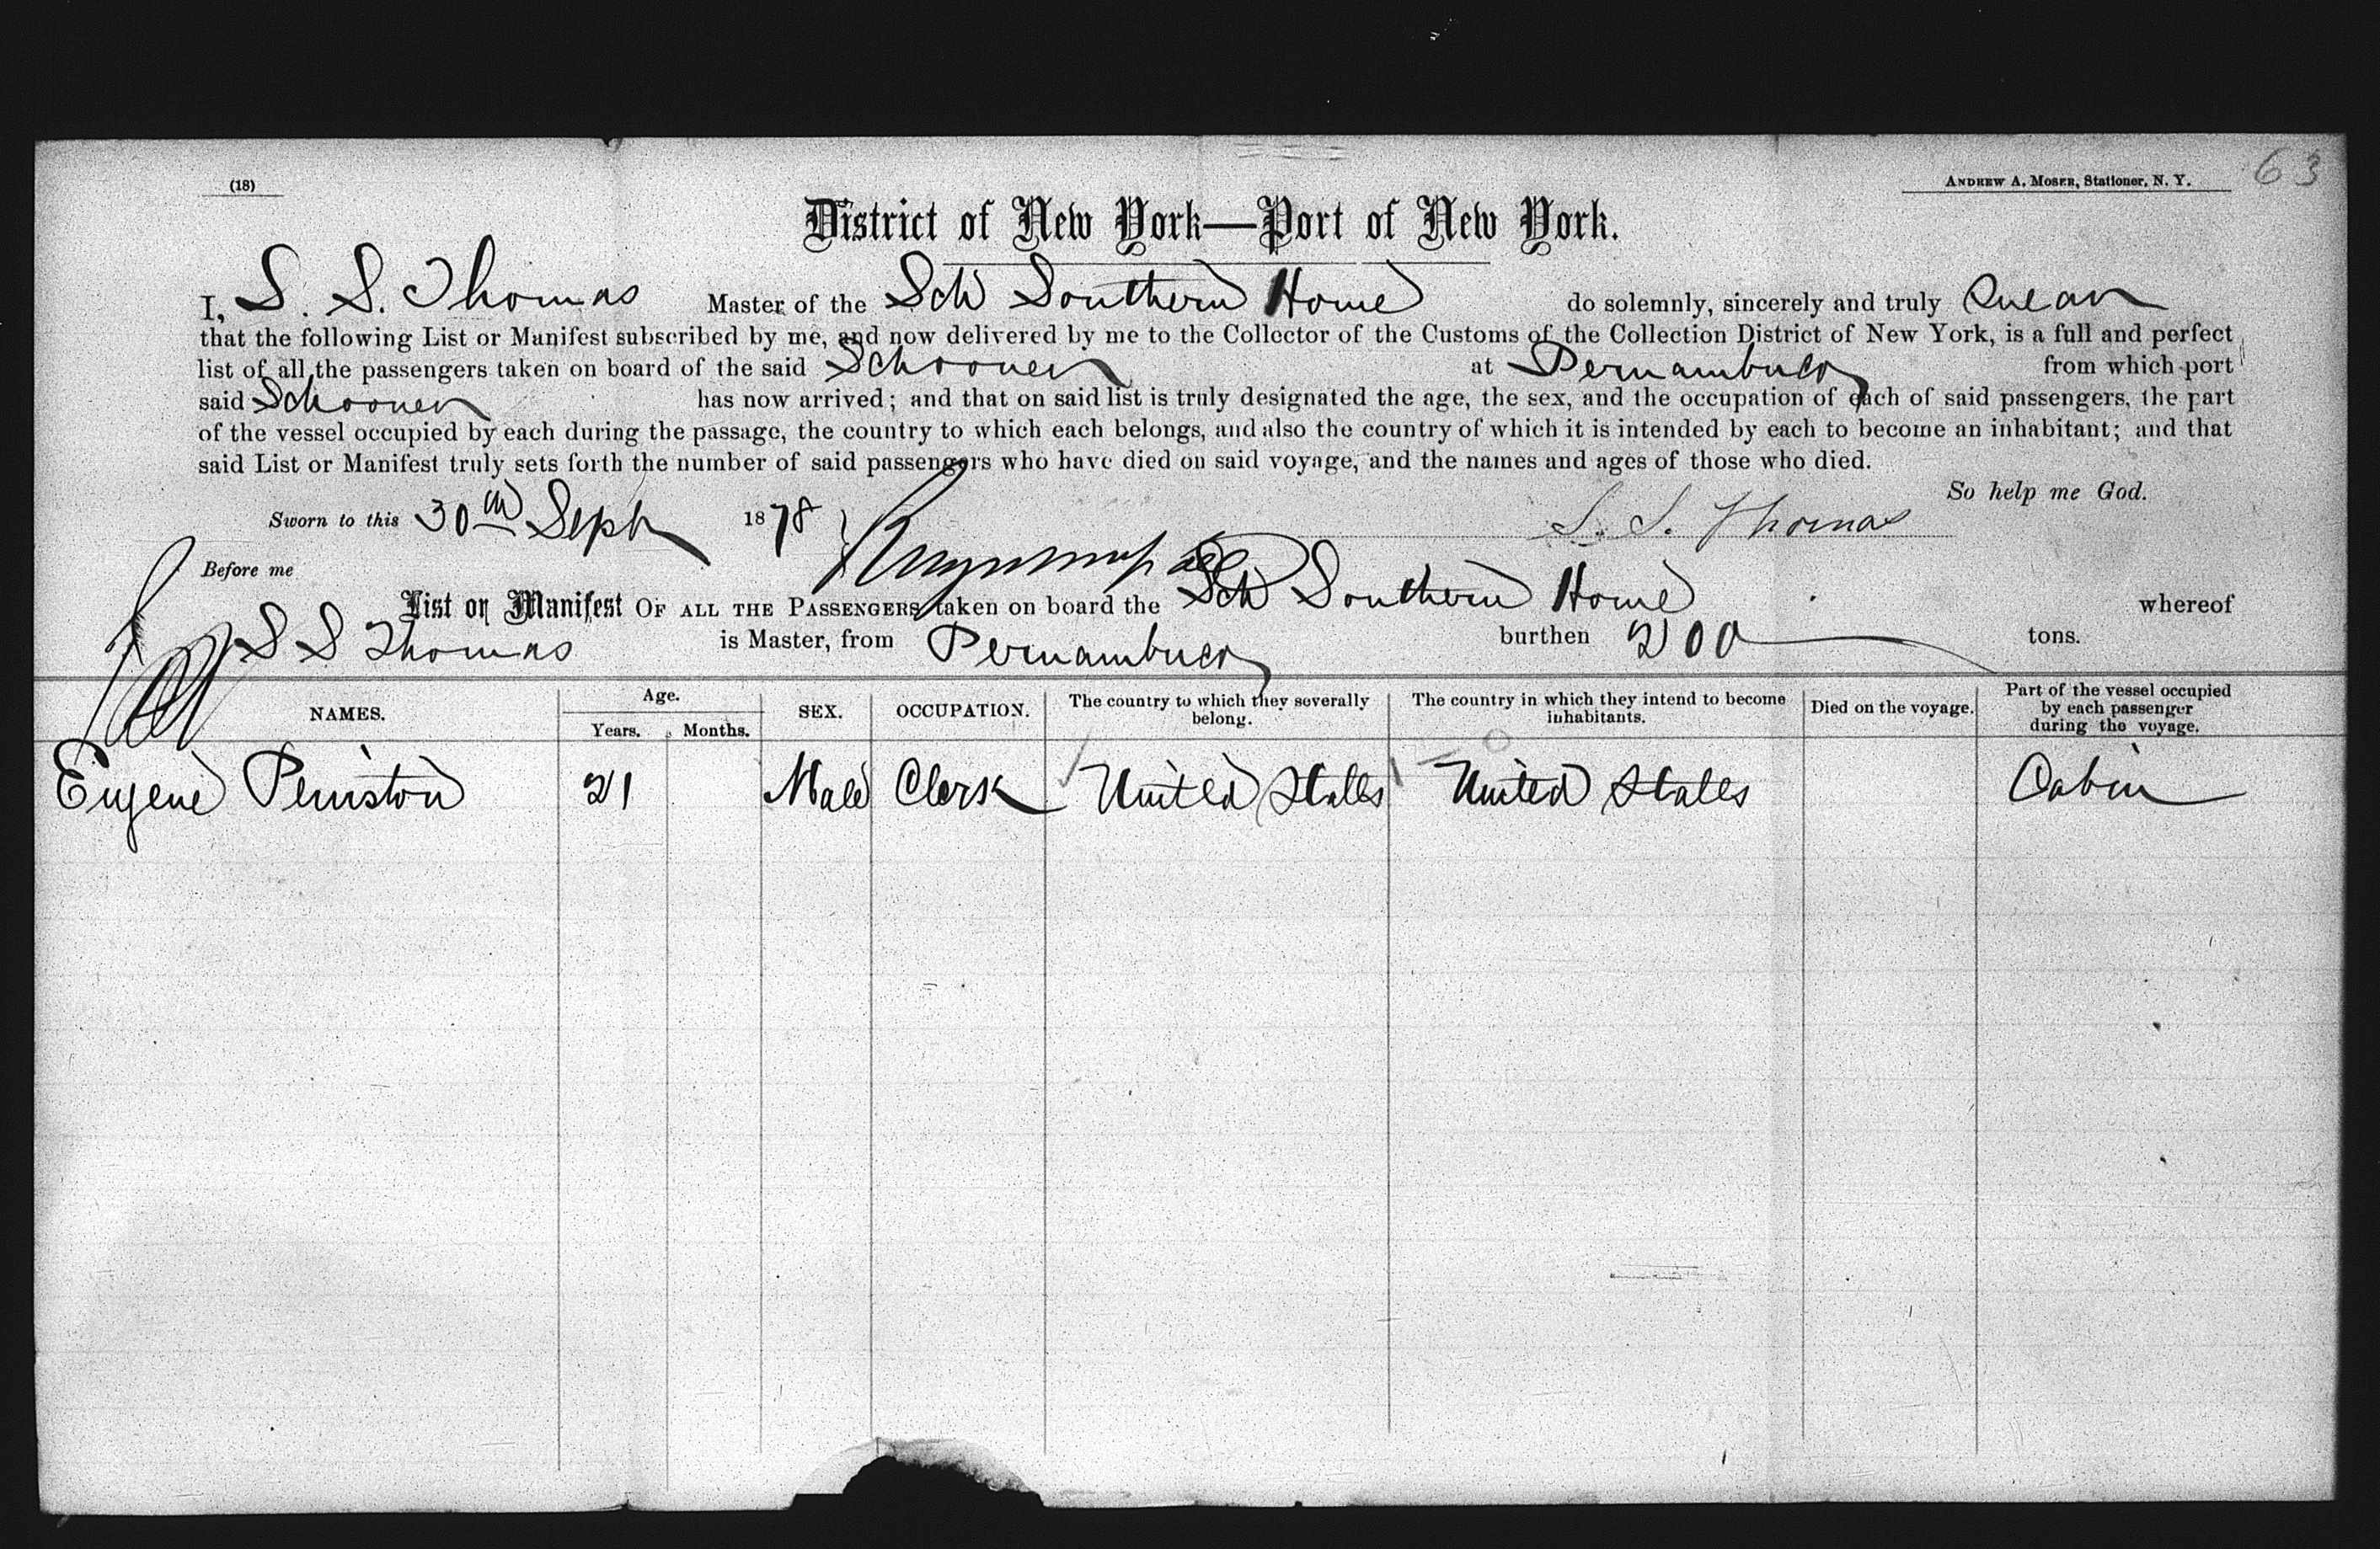 (18)
ANDREW A. MOSER, Stationer, N. Y.
63
District of New York—Port of New York.
I, S. S. Thomas Master of the Sch Southern Home do solemnly, sincerely and truly swear
that the following List or Manifest subscribed by me, and now delivered by me to the Collector of the Customs of the Collection District of New York, is a full and perfect
list of all the passengers taken on board of the said Schooner at Pernambuco from which port
said Schooner has now arrived; and that on said list is truly designated the age, the sex, and the occupation of each of said passengers, the part
of the vessel occupied by each during the passage, the country to which each belongs, and also the country of which it is intended by each to become an inhabitant; and that
said List or Manifest truly sets forth the number of said passengers who have died on said voyage, and the names and ages of those who died.
So help me God.
Sworn to this 30th Sept 1878 S. S. Thomas
Before me
List or Manifest OF ALL THE PASSENGERS taken on board the Sch Southern Home whereof
S S Thomas is Master, from Pernambuco burthen 200 tons.
NAMES. Age. Years. Months. SEX. OCCUPATION. The country to which they severally belong. The country in which they intend to become inhabitants. Died on the voyage. Part of the vessel occupied by each passenger during the voyage.
Eugene Peniston 21 Male Clerk United States United States Cabin